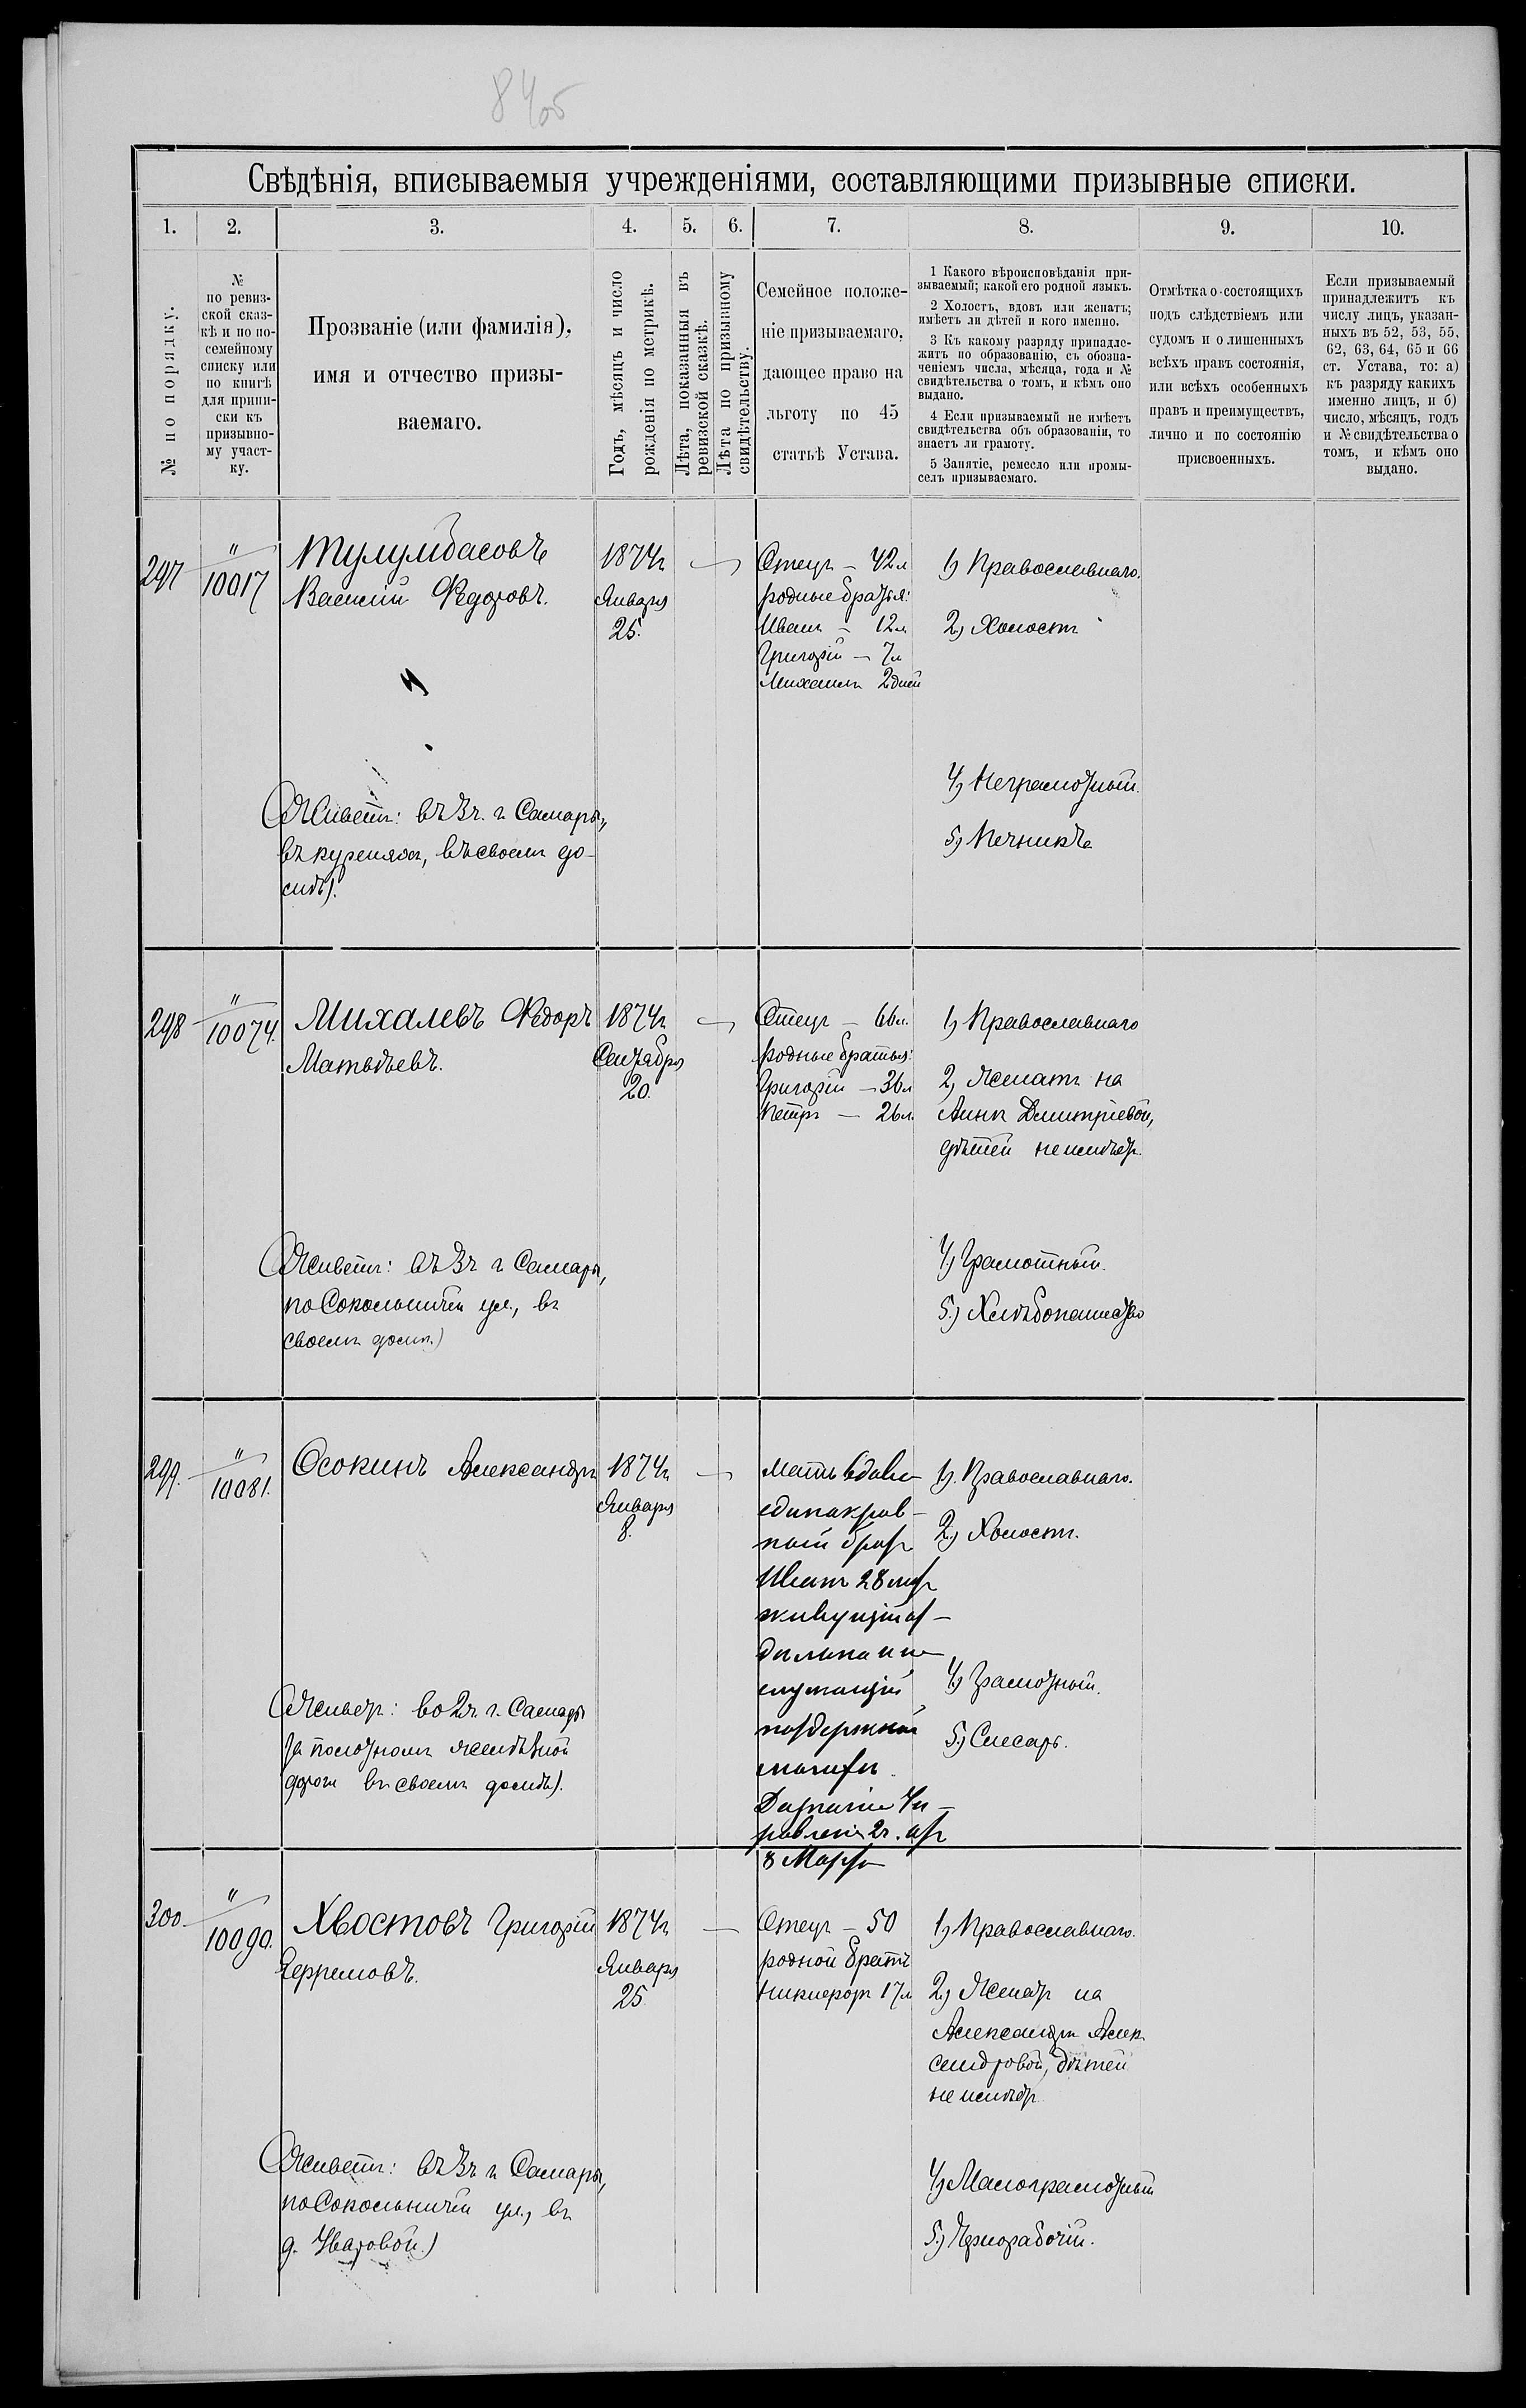 84об
Свѣдѣнія, вписываемыя учрежденіями, составляющими призывные списки.
1. 2. 3. 4. 5. 6. 7. 8. 9. 10.
№ по порядку.
№
по ревиз-
ской сказ-
кѣ и по по-
семейному
списку или
по книгѣ
для припи-
ски къ
призывно-
му участ-
ку.
Прозваніе (или фамилія),
имя и отчество призы-
ваемаго.
Годъ, мѣсяцъ и число
рожденія по метрикѣ.
Лѣта, показанныя въ
ревизской сказкѣ.
Лѣта по призывному
свидѣтельству.
Семейное положе-
ніе призываемаго,
дающее право на
льготу по 45
статьѣ Устава.
1 Какого вѣроисповѣданія при-
зываемый; какой его родной языкъ.
2 Холостъ, вдовъ или женатъ;
имѣетъ ли дѣтей и кого именно.
3 Къ какому разряду принадле-
житъ по образованію, съ обозна-
ченіемъ числа, мѣсяца, года и №
свидѣтельства о томъ, и кѣмъ оно
выдано.
4 Если призываемый не имѣетъ
свидѣтельства объ образованіи, то
знаетъ ли грамоту.
5 Занятіе, ремесло или промы-
селъ призываемаго.
Отмѣтка о состоящихъ
подъ слѣдствіемъ или
судомъ и о лишенныхъ
всѣхъ правъ состоянія,
или всѣхъ особенныхъ
правъ и преимуществъ,
лично и по состоянію
присвоенныхъ.
Если призываемый
принадлежитъ къ
числу лицъ, указан-
ныхъ въ 52, 53, 55,
62, 63, 64, 65 и 66
ст. Устава, то: а)
къ разряду какихъ
именно лицъ, и б)
число, мѣсяцъ, годъ
и № свидѣтельства о
томъ, и кѣмъ оно
выдано.
297
"
10017
Тулумбасовъ
Василій Федоровъ.
1874г
Января
25.
Отецъ – 42л
родные братья:
Иванъ – 12л
Григорій – 7л
Михаилъ 2 дней
1) Православнаго.
2) Холостъ
4) Неграмотный.
5) Печникъ
(Живетъ: въ 3ч. г. Самары,
въ куреняхъ, въ своемъ до-
мѣ).
298
"
10074.
Михалевъ Федоръ
Матвѣевъ.
1874г
Сентября
20.
Отецъ – 66л.
родные братья:
Григорій – 36л
Петръ – 26л.
1) Православнаго
2) Женатъ на
Аннѣ Дмитріевой,
дѣтей не имѣетъ.
4) Грамотный.
5.) Хлѣбопашество
(Живетъ: въ 3ч г Самары,
по Сокольничей ул., въ
своемъ домѣ.)
299.
"
10081.
Осокинъ Александръ
1874г
Января
8.
Мать вдова
единокров-
ный братъ
Иванъ 28 лѣтъ
живущій от-
дѣльно и не
служащій
поддержкой
матери.
1). Православнаго.
2.) Холостъ.
4) Грамотный.
5.) Слесарь.
(Живетъ: во 2ч. г. Самары
за полотномъ желѣзной
дороги въ своемъ домѣ).
8 Марта
300.
"
10090.
Хвостовъ Григорій
Ефремовъ.
1874г
Января
25.
Отецъ – 50
родной братъ
Никифоръ 17л
1) Православнаго.
2.) Женатъ на
Александрѣ Алек
сандровой, дѣтей
не имѣетъ
4) Малограмотный
5.) Чернорабочій.
(Живетъ: въ 3ч г Самары,
по Сокольничей ул., въ
д. Уваровой.)